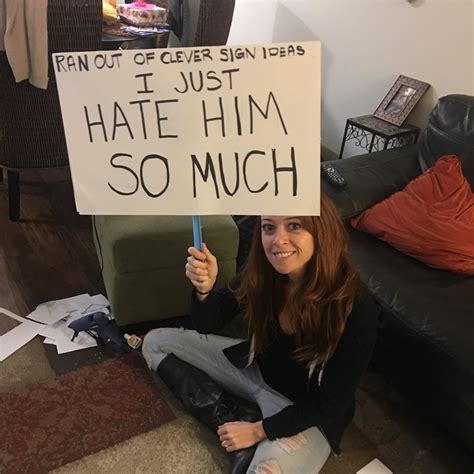 RAN OUT OF CLEVER SIGN IDEAS
I JUST
HATE HIM
SO MUCH